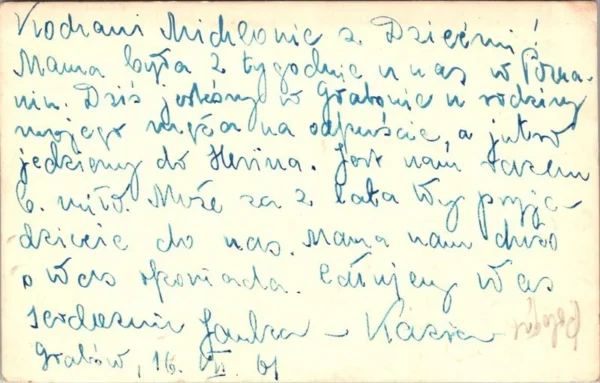 Kochani Michłonie z Dziećmi!
Mama była 2 tygodnie u nas w Pozna-
niu. Dziś jesteśmy w Grabowie u rodziny
mojego męża na odpuście, a jutro
jedziemy do Herina. Jest nam razem
b. miło. Może za 2 lata Wy przyje-
dziecie do nas. Mama nam dużo
o Was opowiada. Całujemy Was
serdecznie Janka - Kazia
Grabów, 16. VII. 61